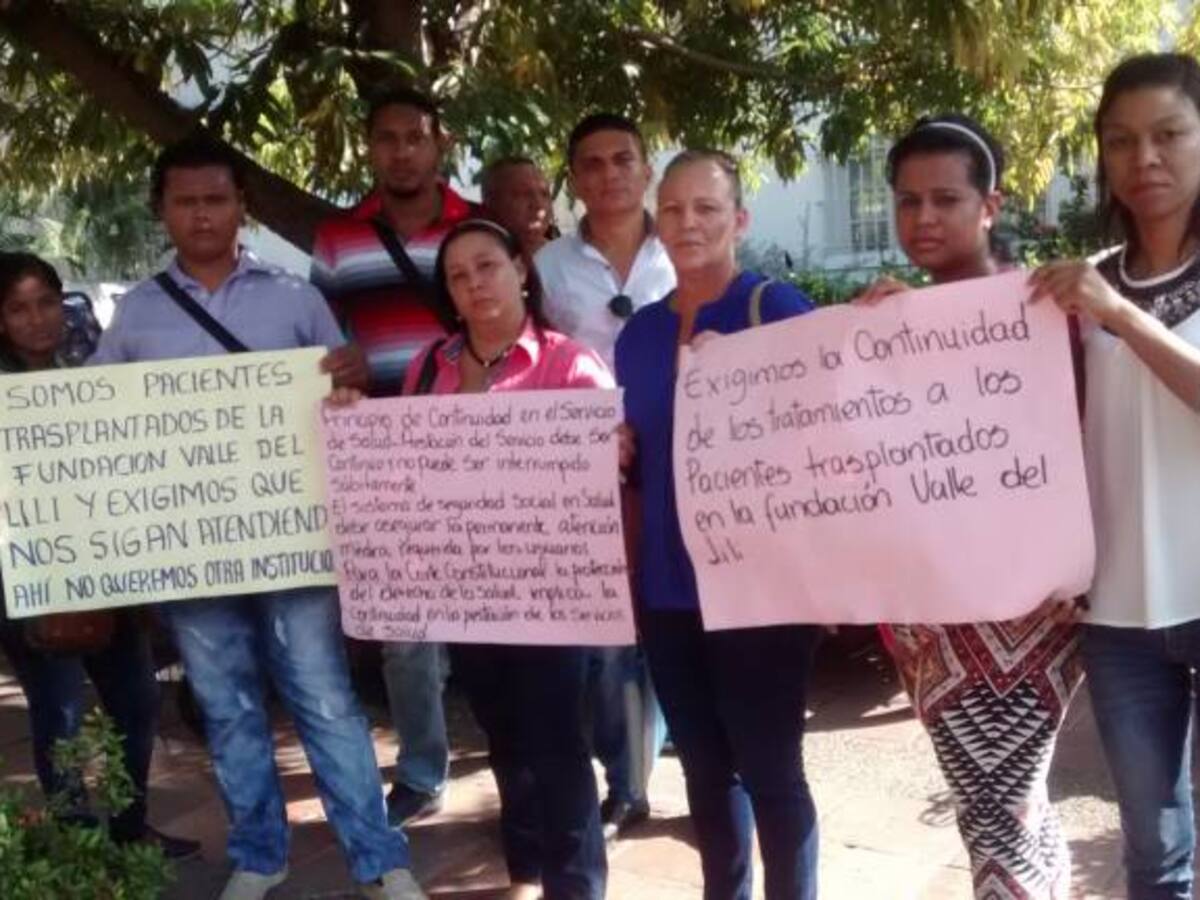 SOMOS PACIENTES
TRASPLANTADOS DE LA
FUNDACION VALLE DEL
LILI Y EXIGIMOS QUE
NOS SIGAN ATENDIEND
AHÍ NO QUEREMOS OTRA INSTITUCIO
Principio de Continuidad en el Servicio
de Salud. Prestacion del Servicio debe ser
Continuo y no puede ser interrumpido
Súbitamente
El sistema de seguridad social en Salud
debe asegurar la permanente atención
médica requerida por los usuarios.
Para la Corte Constitucional la protección
del derecho de la Salud implica la
continuidad en la prestación de los servicios
de salud
Exigimos la Continuidad
de los tratamientos a los
Pacientes trasplantados
en la fundación Valle del
Lili